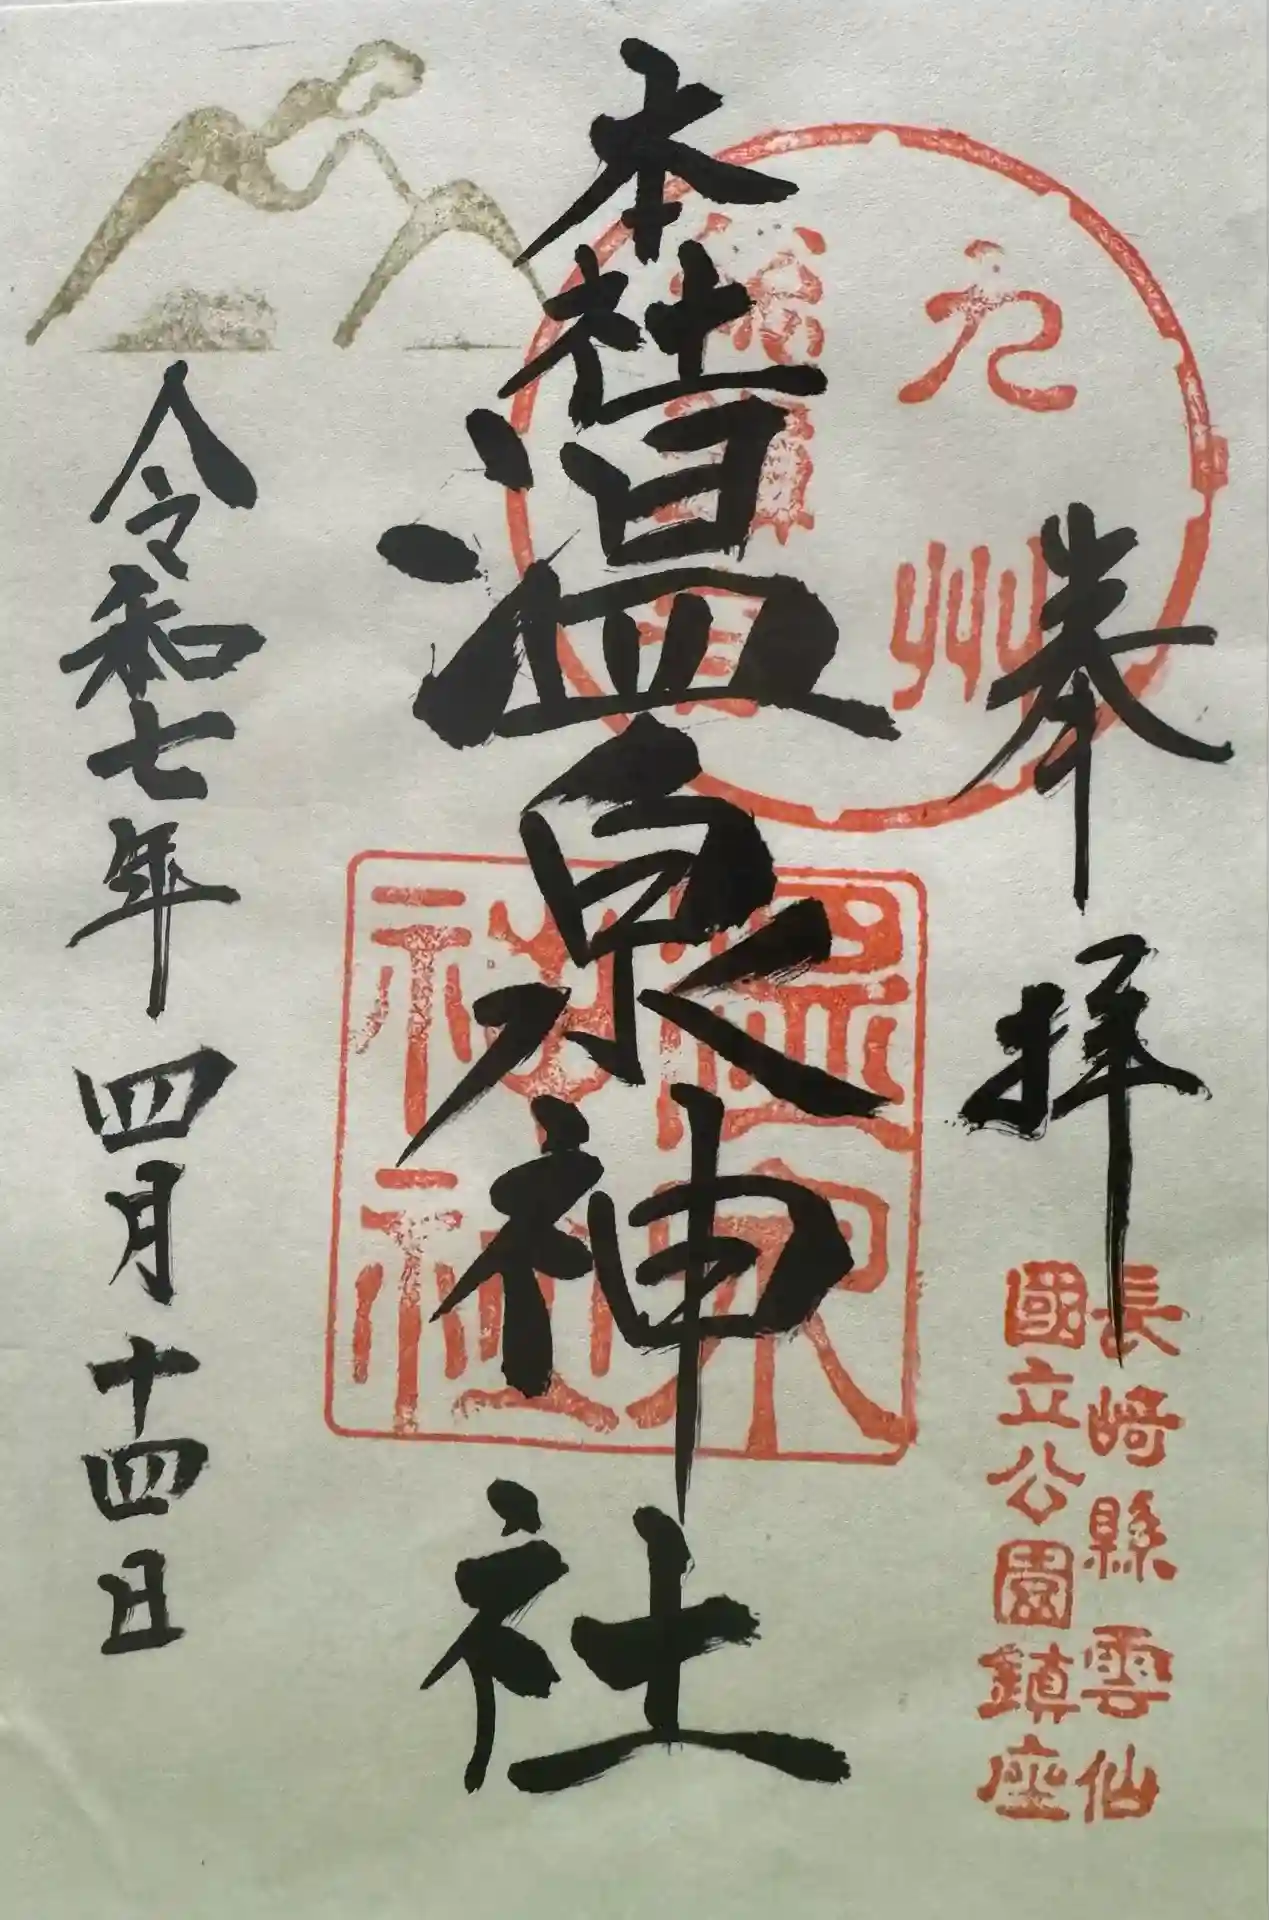 奉拝
長崎縣雲仙
國立公園鎮座
九州
本社温泉神社
温泉
神社
令和七年四月十四日